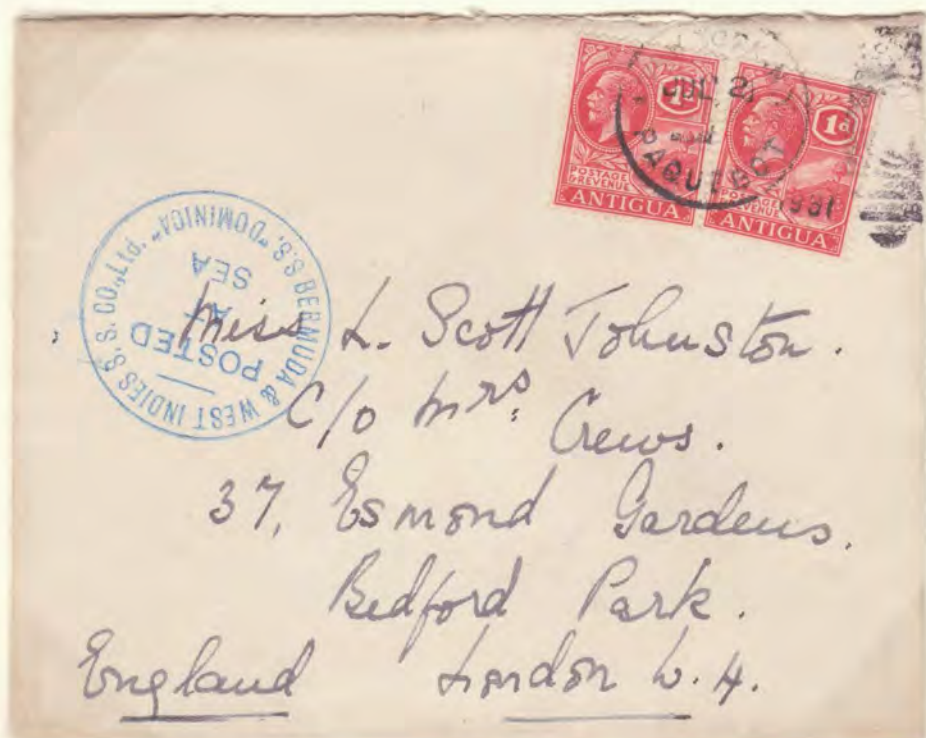 1d
POSTAGE
& REVENUE
ANTIGUA
1d
POSTAGE
& REVENUE
ANTIGUA
JUL 21
PAQUEBOT
1931
BERMUDA & WEST INDIES S. S. CO., LTD. S.S. "DOMINICA"
POSTED
AT
SEA
Miss L. Scott Johnston.
C/o Mrs. Crews.
37, Esmond Gardens.
Bedford Park.
England London W. 4.